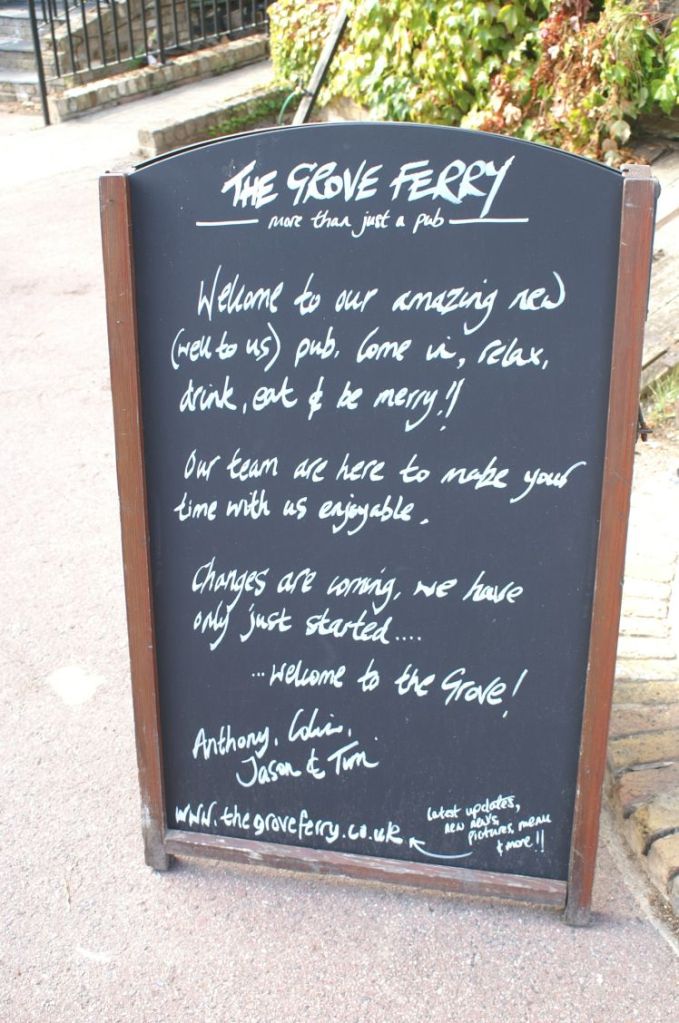 THE GROVE FERRY
more than just a pub
Welcome to our amazing new
(well to us) pub. Come in, relax,
drink, eat & be merry!!
Our team are here to make your
time with us enjoyable.
Changes are coming, we have
only just started....
...Welcome to the Grove!
Anthony, Colin,
Jason & Tim
www.thegroveferry.co.uk
latest updates,
new news,
pictures, menu
& more!!